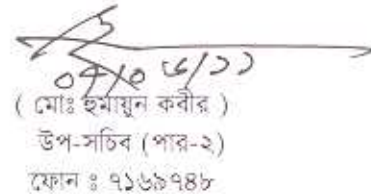 ০৭/০৬/১১
( মোঃ হুমায়ুন কবীর )
উপ-সচিব (পার-২)
ফোন ঃ ৭১৬৯৭৪৮